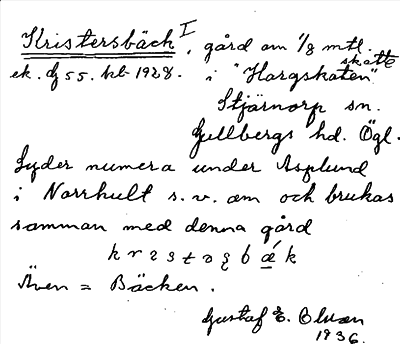 Kristersbäck I, gård om 1/8 mtl. skatte
ek. bl 55. kb 1928. i "Hargskaten".
Stjärnorp sn.
Gullbergs hd. Ögl.
Lyder numera under Asplund
i Norrhult s. v. om och brukas
samman med denna gård
Även = Bäcken.
Gustaf E. Olson
1936.